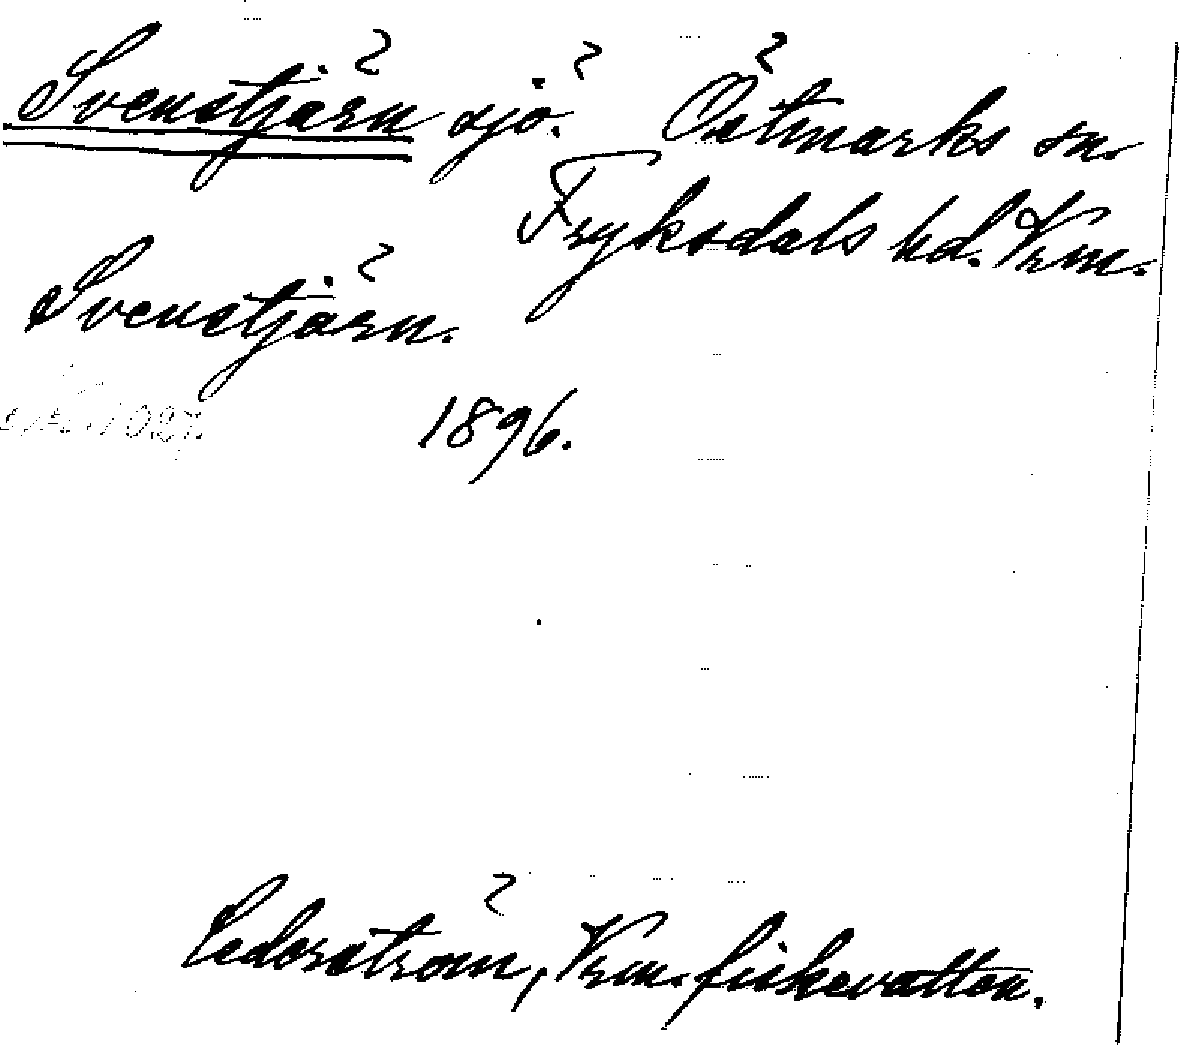 Svenstjärn sjö. Östmarks sn.
Fryksdals hd. Vrm.
Svenstjärn.
1896.
Cederström, Vrm. fiskevatten.